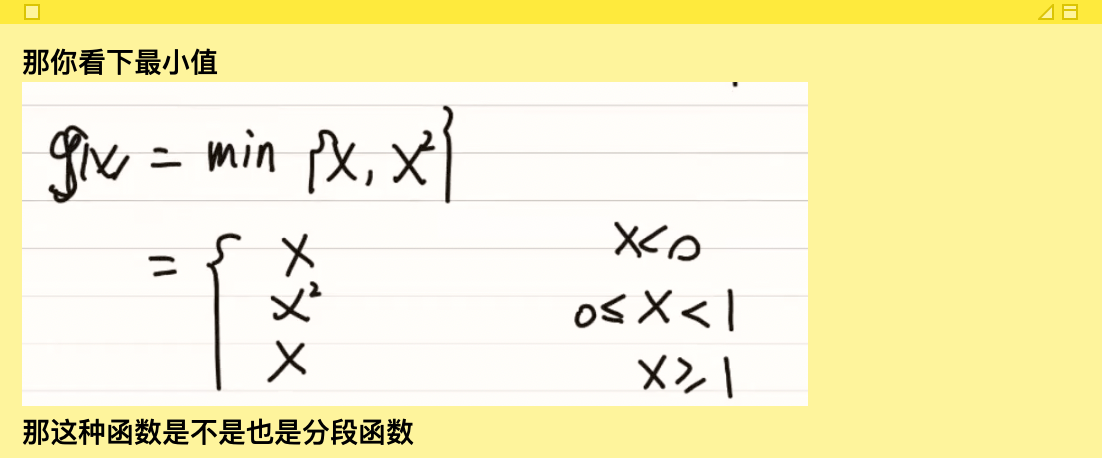 那你看下最小值
g(x) = min {x, x²}
= { x x<0
x² 0≤x<1
x x≥1
那这种函数是不是也是分段函数